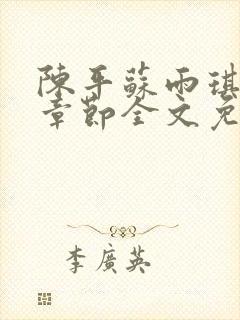 陳平蘇雨琪
章節全文免
李廣英